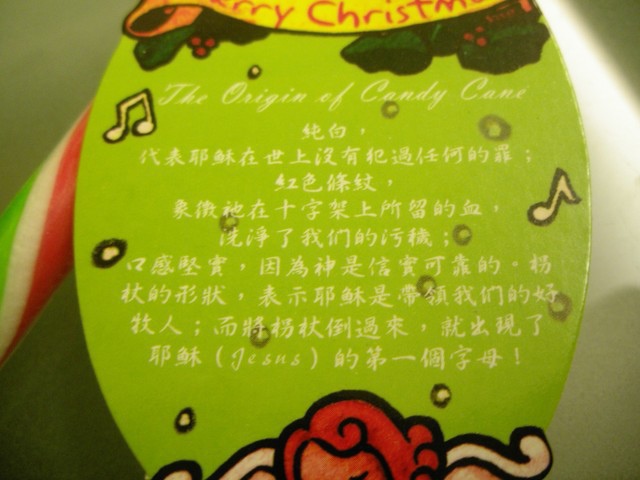 Merry Christm
The Origin of Candy Cane
純白，
代表耶穌在世上沒有犯過任何的罪；
紅色條紋，
象徵祂在十字架上所留的血，
洗淨了我們的污穢；
口感堅實，因為神是信實可靠的。柺
杖的形狀，表示耶穌是帶領我們的好
牧人；而將柺杖倒過來，就出現了
耶穌（Jesus）的第一個字母！